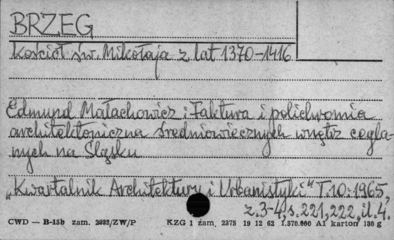 BRZEG
Kościół św. Mikołaja z lat 1370-1416
Edmund Małachowicz: Faktura i polichromia
architektoniczna średniowiecznych wnętrz cegla-
nych na Śląsku
„Kwartalnik Architektury i Urbanistyki" T.10:1965,
z.3-4, s.221,222, il.4.
CWD — B-15b zam. /ZW/P KZG 1 zam. 2275 19 12 62 1.570.000 A1 karton 186 g